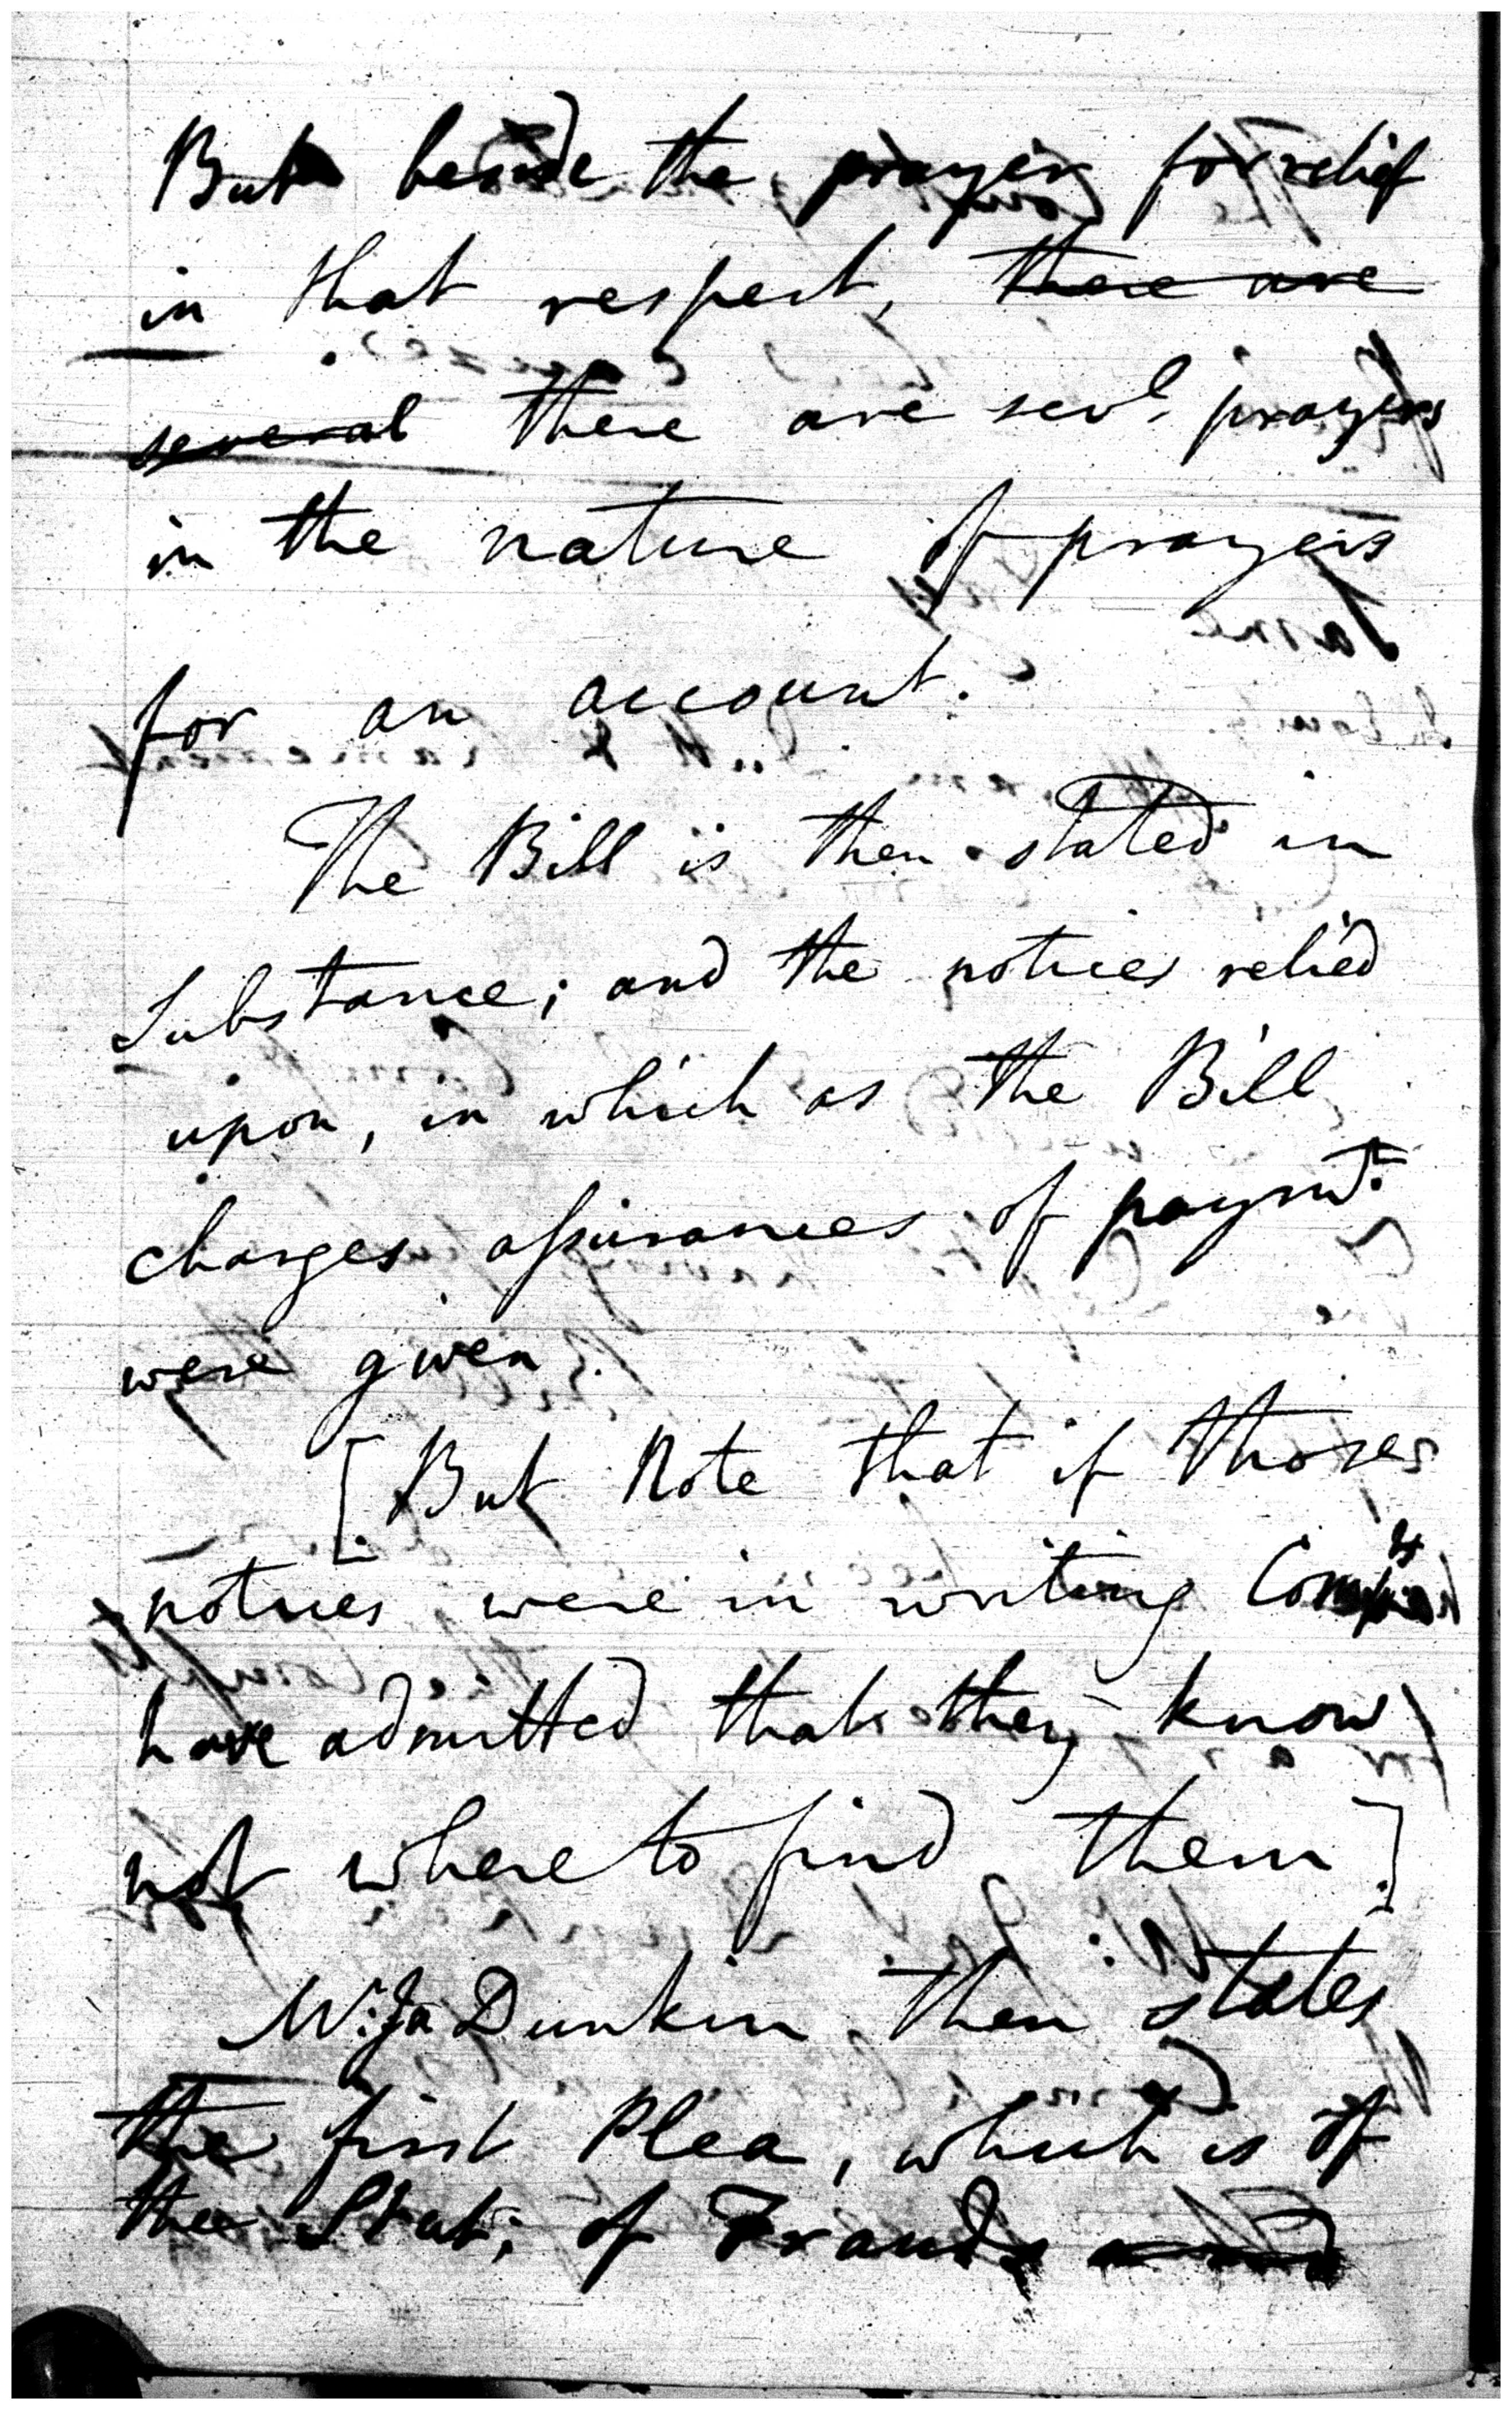 But beside the prayer for relief
in that respect, ~~there are~~
~~several~~ there are sevl. prayers
in the nature of prayers
for an account.
The Bill is then stated in
Substance; and the notices relied
upon, in which as the Bill
charges assurances of paymt.
were given.
[But Note that if those
notices were in writing Compts
have admitted that they know
not where to find them]
Mr. Ja Dunkin then states
the first Plea, which is of
the Stat: of Frauds ~~and~~